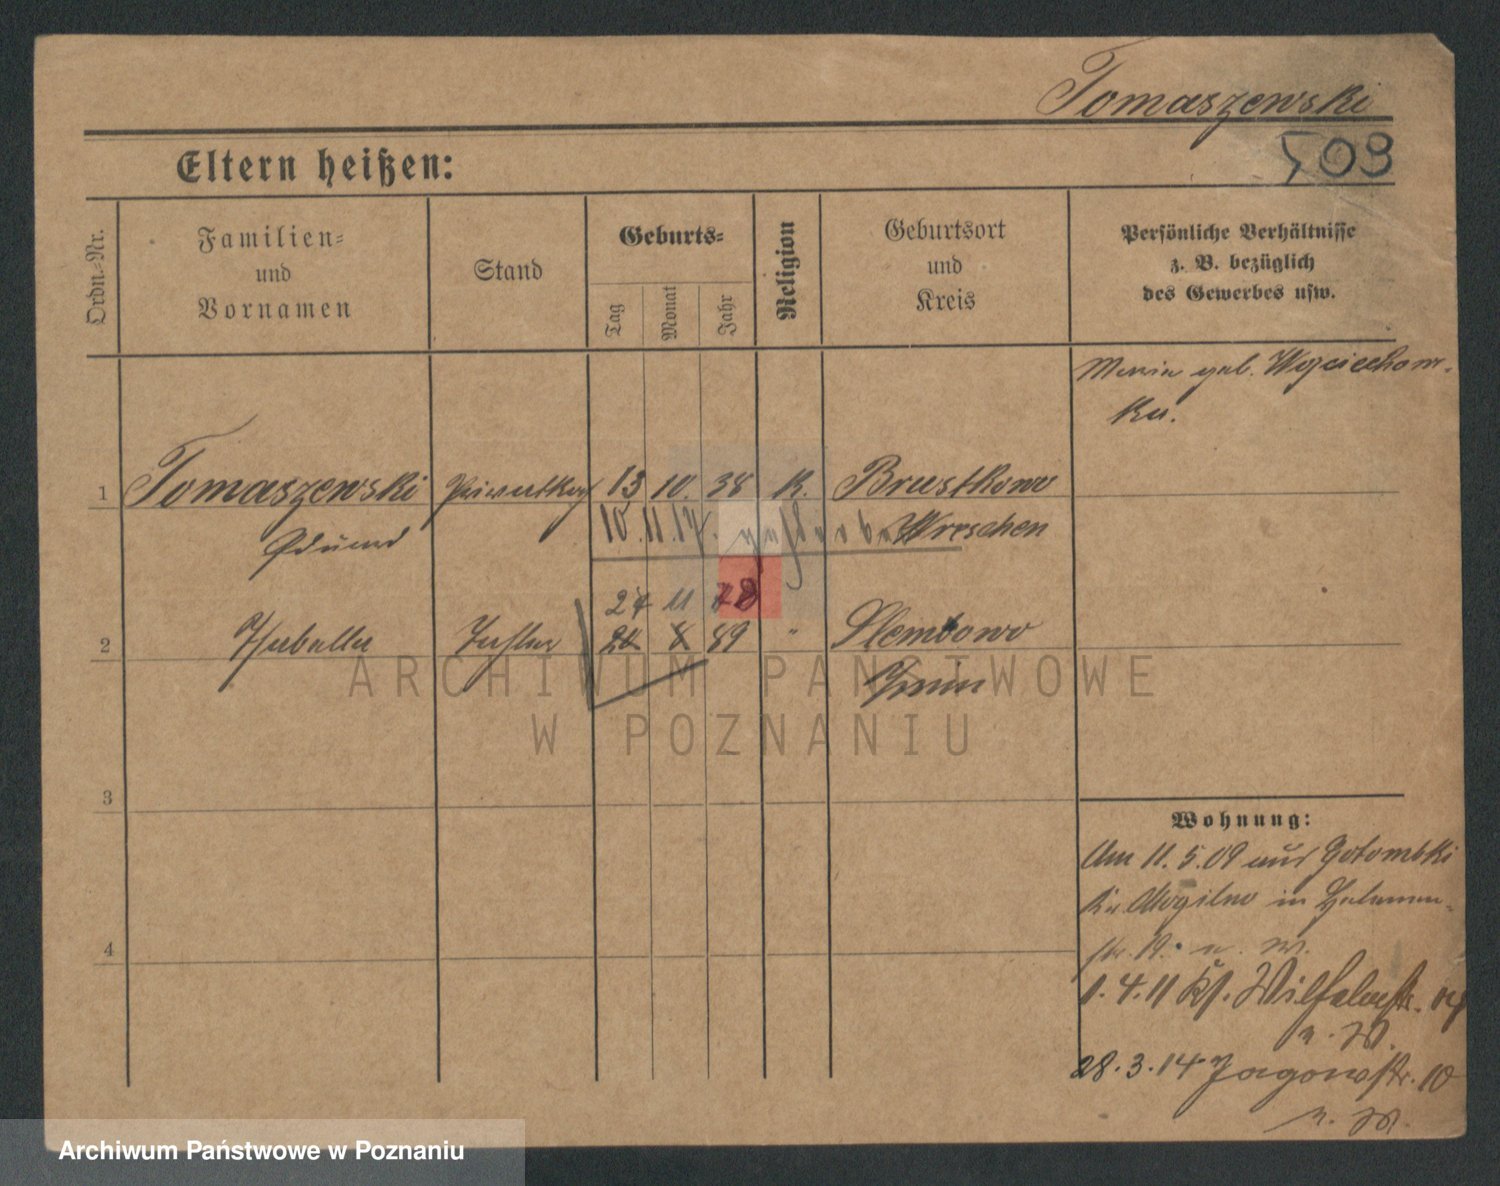 Tomaszewski
509
Eltern heißen:
Ordn.-Nr.
Familien-
und
Vornamen
Stand
Geburts-
Tag
Monat
Jahr
Religion
Geburtsort
und
Kreis
Persönliche Verhältnisse
z. B. bezüglich
des Gewerbes usw.
Maria geb. Wojciechow-
ka.
1 Tomaszewski 13 10. 38 K. Brustkowo
Eduard 10. 11. 17. Wreschen
24 11 78
2 Isabella Tochter 20 8 89 " Slembowo
Znin
ARCHIWUM PAŃSTWOWE
W POZNANIU
3
4
Wohnung:
Am 11. 5. 09 aus Gotombki
Kr. Mogilno in
str. 19. u. W.
1. 4. 11
n. W.
28. 3. 14 Jagowstr. 10
n. W.
Archiwum Państwowe w Poznaniu